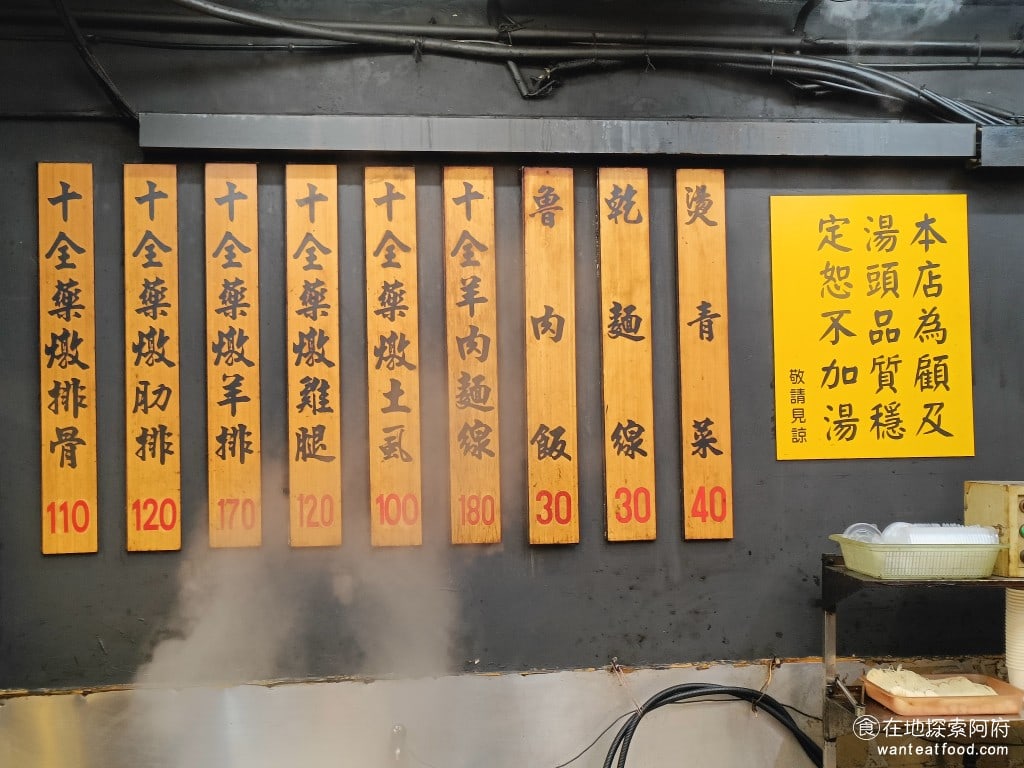 十全藥燉排骨 110
十全藥燉肋排 120
十全藥燉羊排 170
十全藥燉雞腿 120
十全藥燉土虱 100
十全羊肉麵線 180
魯肉飯 30
乾麵線 30
燙青菜 40
本店為顧及
湯頭品質穩
定恕不加湯
敬請見諒
食在地探索阿府
wanteatfood.com